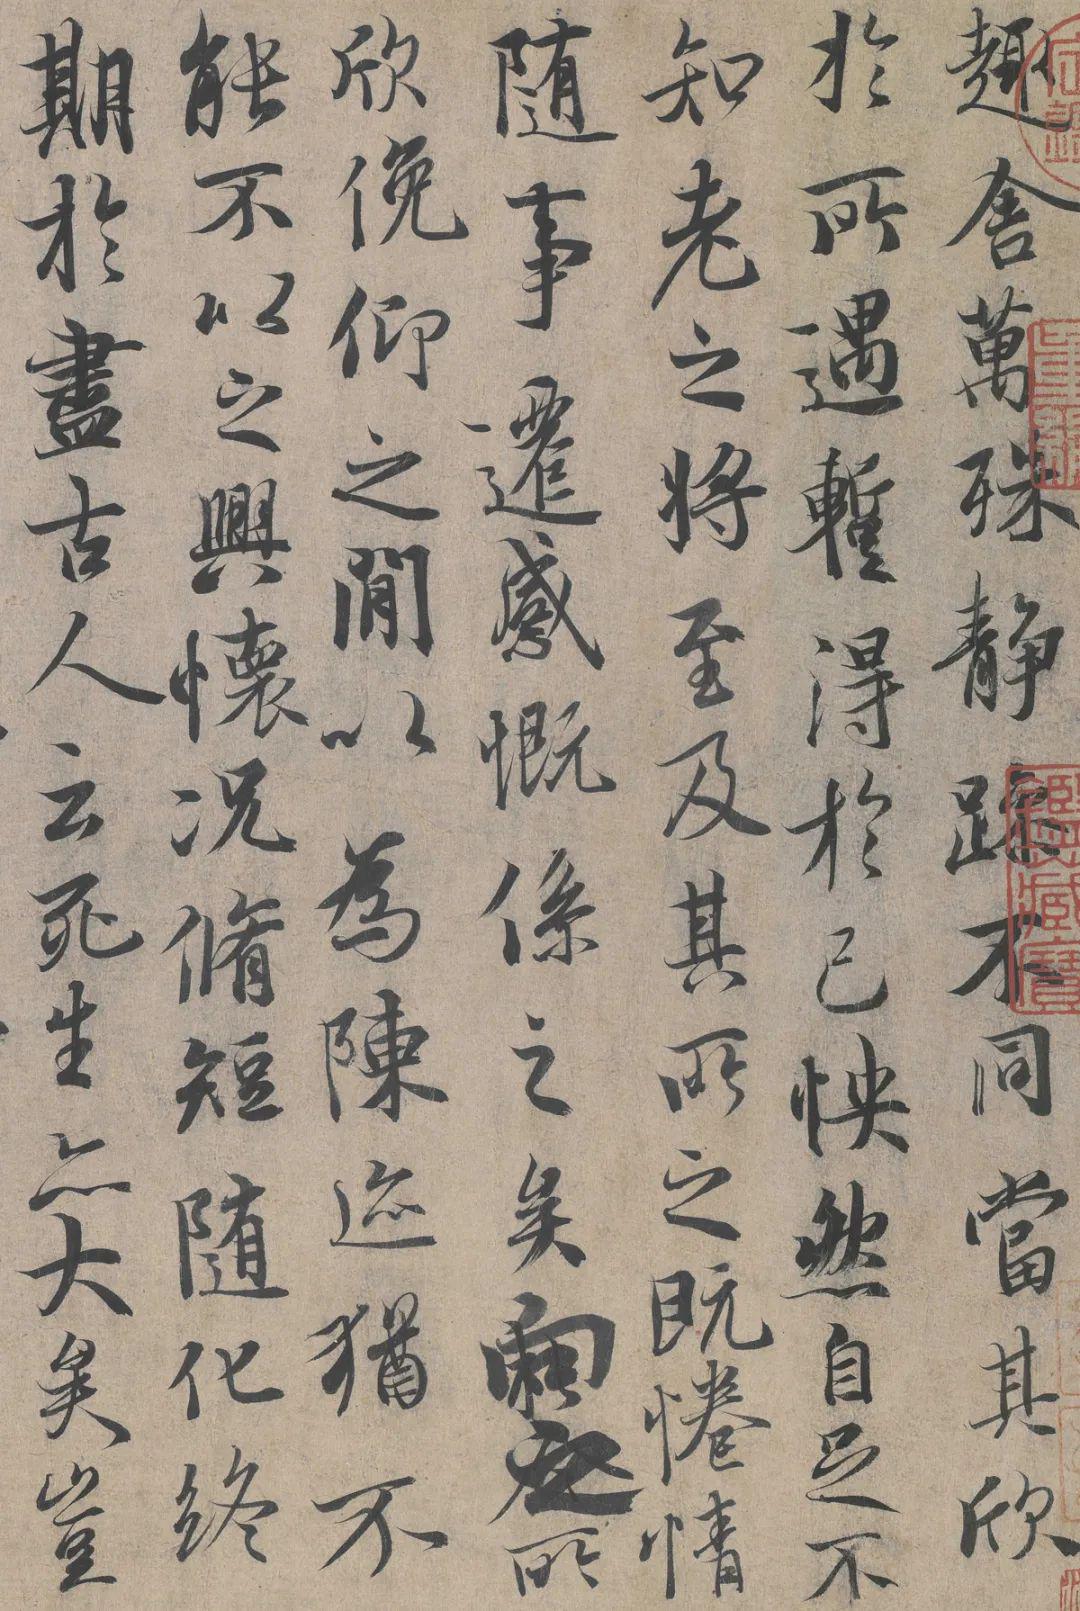 趣舎萬殊静躁不同當其欣
於所遇暫得於己怏然自足不
知老之將至及其所之既惓情
随事遷感慨係之矣向之所
欣俛仰之閒以為陳迹猶不
能不以之興懷况脩短随化終
期於盡古人云死生亦大矣豈